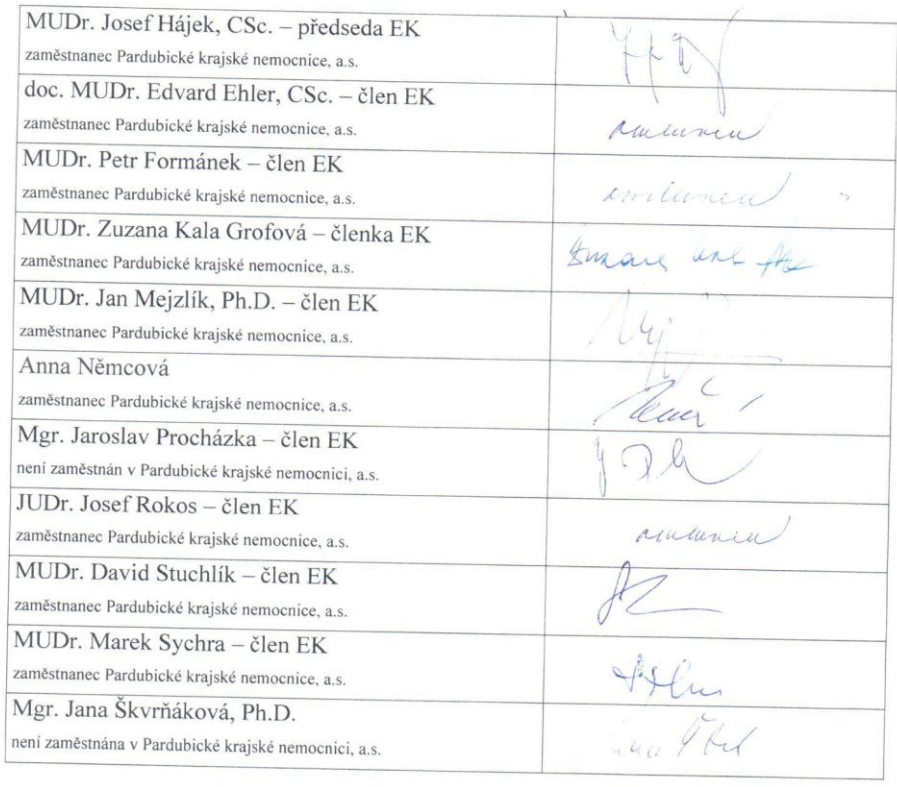 MUDr. Josef Hájek, CSc. – předseda EK
zaměstnanec Pardubické krajské nemocnice, a.s.
doc. MUDr. Edvard Ehler, CSc. – člen EK
zaměstnanec Pardubické krajské nemocnice, a.s.
omluven
MUDr. Petr Formánek – člen EK
zaměstnanec Pardubické krajské nemocnice, a.s.
omluven
MUDr. Zuzana Kala Grofová – členka EK
zaměstnanec Pardubické krajské nemocnice, a.s.
MUDr. Jan Mejzlík, Ph.D. – člen EK
zaměstnanec Pardubické krajské nemocnice, a.s.
Anna Němcová
zaměstnanec Pardubické krajské nemocnice, a.s.
Mgr. Jaroslav Procházka – člen EK
není zaměstnán v Pardubické krajské nemocnici, a.s.
JUDr. Josef Rokos – člen EK
zaměstnanec Pardubické krajské nemocnice, a.s.
omluven
MUDr. David Stuchlík – člen EK
zaměstnanec Pardubické krajské nemocnice, a.s.
MUDr. Marek Sychra – člen EK
zaměstnanec Pardubické krajské nemocnice, a.s.
Mgr. Jana Škvrňáková, Ph.D.
není zaměstnána v Pardubické krajské nemocnici, a.s.